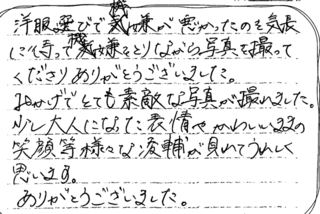 洋服選びで機嫌が悪かったのを気長
に待って機嫌をとりながら写真を撮って
くださりありがとうございました。
おかげでとても素敵な写真が撮れました。
少し大人になった表情やかわいいままの
笑顔等様々な涼輔が見れてうれしく
思います。
ありがとうございました。